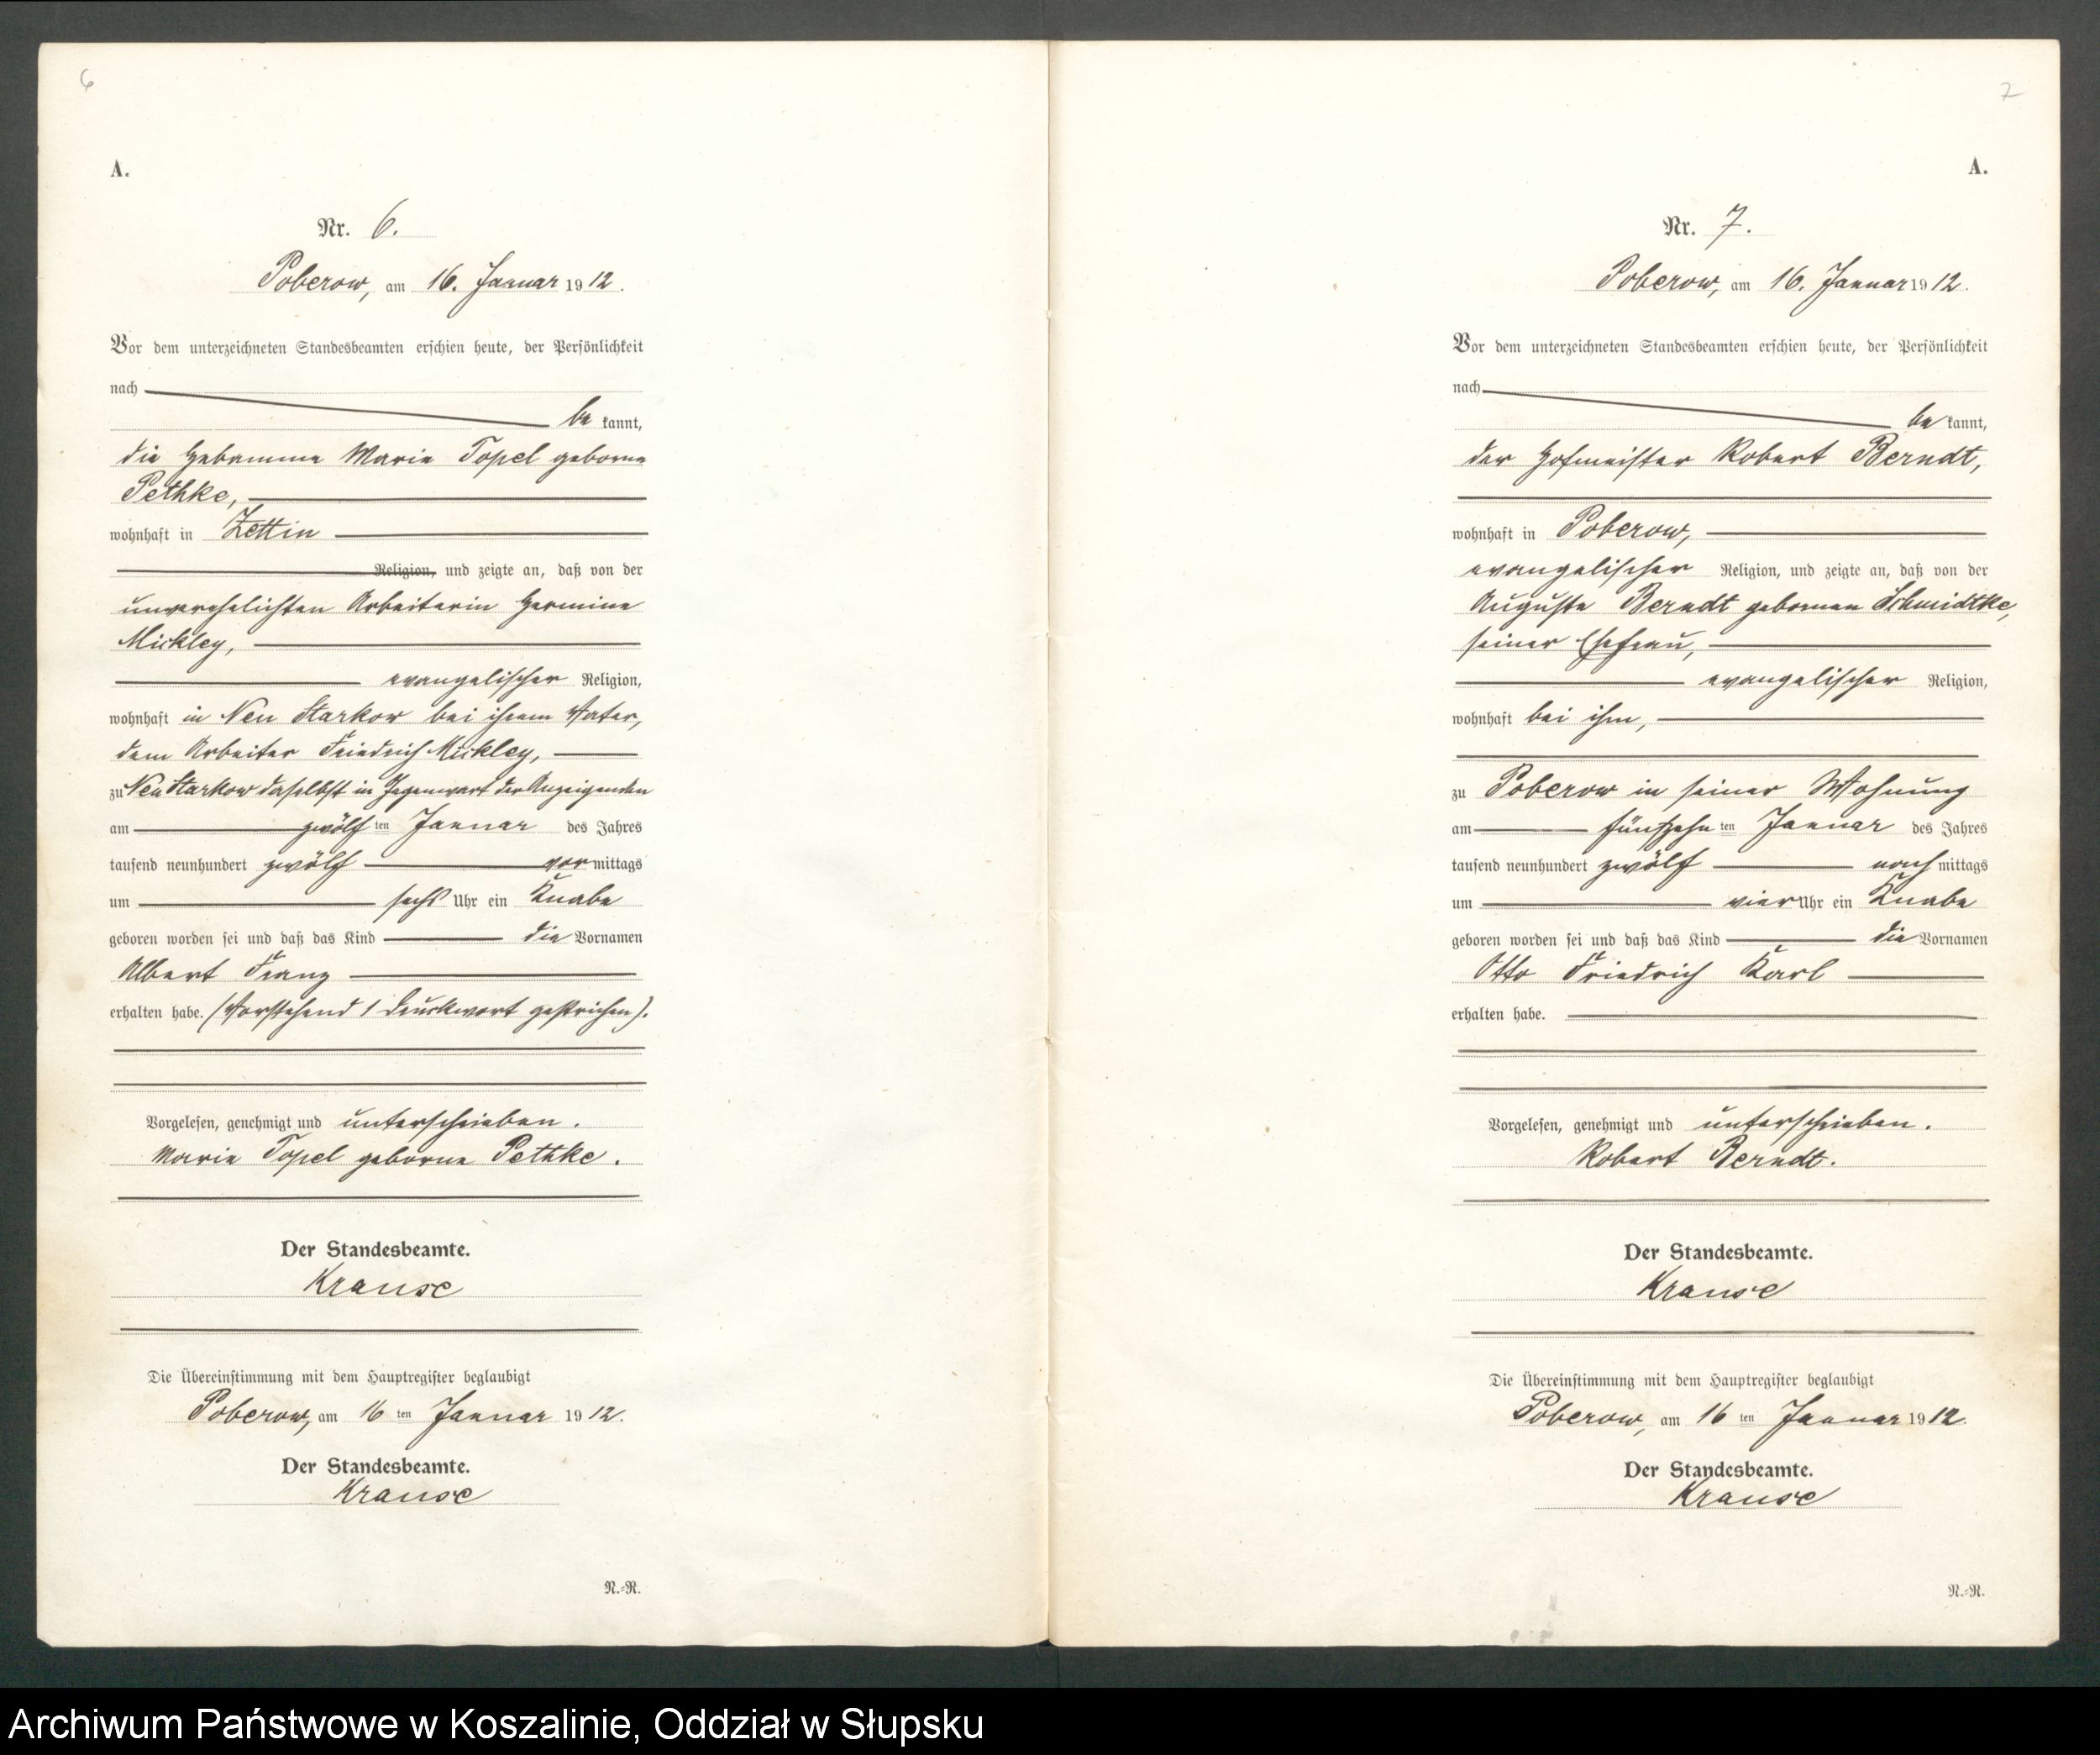 6
A.
Nr. 6.
Poberow, am 16. Januar 1912.
Vor dem unterzeichneten Standesbeamten erschien heute, der Persönlichkeit
nach
be kannt,
die Hebamme Marie Topel geborne
Pethke,
wohnhaft in Zettin
Religion, und zeigte an, daß von der
unverehelichten Arbeiterin Hermine
Mickley,
evangelischer Religion,
wohnhaft in Neu Starkow bei ihrem Vater,
dem Arbeiter Friedrich Mickley,
zu Neu Starkow daselbst in Gegenwart der Anzeigenden
am zwölf ten Januar des Jahres
tausend neunhundert zwölf vor mittags
um sechs Uhr ein Knabe
geboren worden sei und daß das Kind die Vornamen
Albert Franz
erhalten habe. (Vorstehend 1 Druckwort gestrichen).
Vorgelesen, genehmigt und unterschrieben.
Marie Topel geborne Pethke.
Der Standesbeamte.
Krause
Die Übereinstimmung mit dem Hauptregister beglaubigt
Poberow, am 16 ten Januar 1912.
Der Standesbeamte.
Krause
N.=R.
7
A.
Nr. 7.
Poberow, am 16. Januar 1912.
Vor dem unterzeichneten Standesbeamten erschien heute, der Persönlichkeit
nach
be kannt,
der Hofmeister Robert Berndt,
wohnhaft in Poberow,
evangelischer Religion, und zeigte an, daß von der
Auguste Berndt gebornen Schmidtke,
seiner Ehefrau,
evangelischer Religion,
wohnhaft bei ihm,
zu Poberow in seiner Wohnung
am fünfzehn ten Januar des Jahres
tausend neunhundert zwölf nach mittags
um vier Uhr ein Knabe
geboren worden sei und daß das Kind die Vornamen
Otto Friedrich Karl
erhalten habe.
Vorgelesen, genehmigt und unterschrieben.
Robert Berndt.
Der Standesbeamte.
Krause
Die Übereinstimmung mit dem Hauptregister beglaubigt
Poberow, am 16 ten Januar 1912.
Der Standesbeamte.
Krause
N.=R.
Archiwum Państwowe w Koszalinie, Oddział w Słupsku